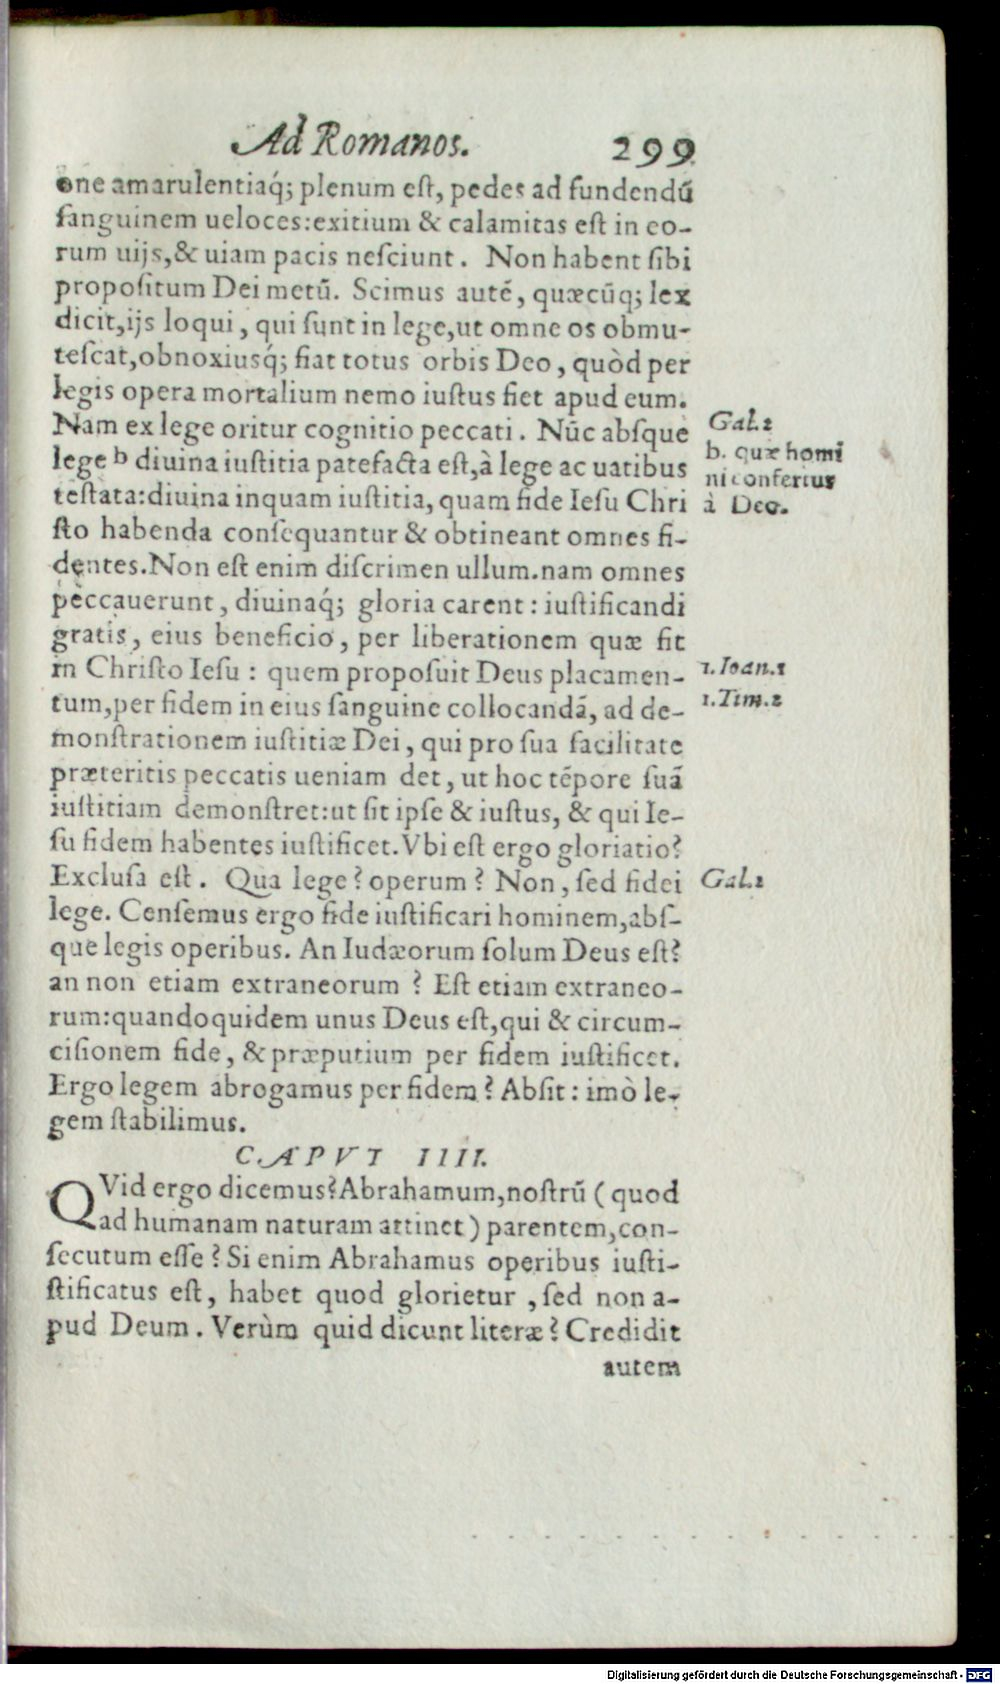 Ad Romanos. 299
one amarulentiaq́; plenum eſt, pedes ad fundendũ
ſanguinem ueloces:exitium & calamitas eſt in eo-
rum uijs,& uiam pacis neſciunt. Non habent ſibi
propoſitum Dei metũ. Scimus autẽ, quæcũq; lex
dicit,ijs loqui, qui ſunt in lege,ut omne os obmu-
teſcat,obnoxiusq́; fiat totus orbis Deo, quòd per
legis opera mortalium nemo iuſtus fiet apud eum.
Nam ex lege oritur cognitio peccati. Nũc abſque
lege ᵇ diuina iuſtitia patefacta eſt,à lege ac uatibus
teſtata:diuina inquam iuſtitia, quam fide Ieſu Chri
ſto habenda conſequantur & obtineant omnes fi-
dentes.Non eſt enim diſcrimen ullum.nam omnes
peccauerunt, diuinaq́; gloria carent: iuſtificandi
gratis, eius beneficio, per liberationem quæ fit
in Chriſto Ieſu: quem propoſuit Deus placamen-
tum,per fidem in eius ſanguine collocandã, ad de-
monſtrationem iuſtitiæ Dei, qui pro ſua facilitate
præteritis peccatis ueniam det, ut hoc tẽpore ſuã
iuſtitiam demonſtret:ut ſit ipſe & iuſtus, & qui Ie-
ſu fidem habentes iuſtificet. Vbi eſt ergo gloriatio?
Excluſa eſt. Qua lege? operum? Non, ſed fidei
lege. Cenſemus ergo fide iuſtificari hominem,abſ-
que legis operibus. An Iudæorum ſolum Deus eſt?
an non etiam extraneorum? Eſt etiam extraneo-
rum:quandoquidem unus Deus eſt,qui & circum-
ciſionem fide, & præputium per fidem iuſtificet.
Ergo legem abrogamus per fidem? Abſit: imò le-
gem ſtabilimus.
CAPVT IIII.
QVid ergo dicemus? Abrahamum,noſtrũ (quod
ad humanam naturam attinet) parentem,con-
ſecutum eſſe? Si enim Abrahamus operibus iuſti-
ſtificatus eſt, habet quod glorietur, ſed non a-
pud Deum. Verùm quid dicunt literæ? Credidit
autem
Gal.2
b. quæ homi
ni confertur
à Deo.
1. Ioan.2
1.Tim.2
Gal.2
Digitalisierung gefördert durch die Deutsche Forschungsgemeinschaft - DFG